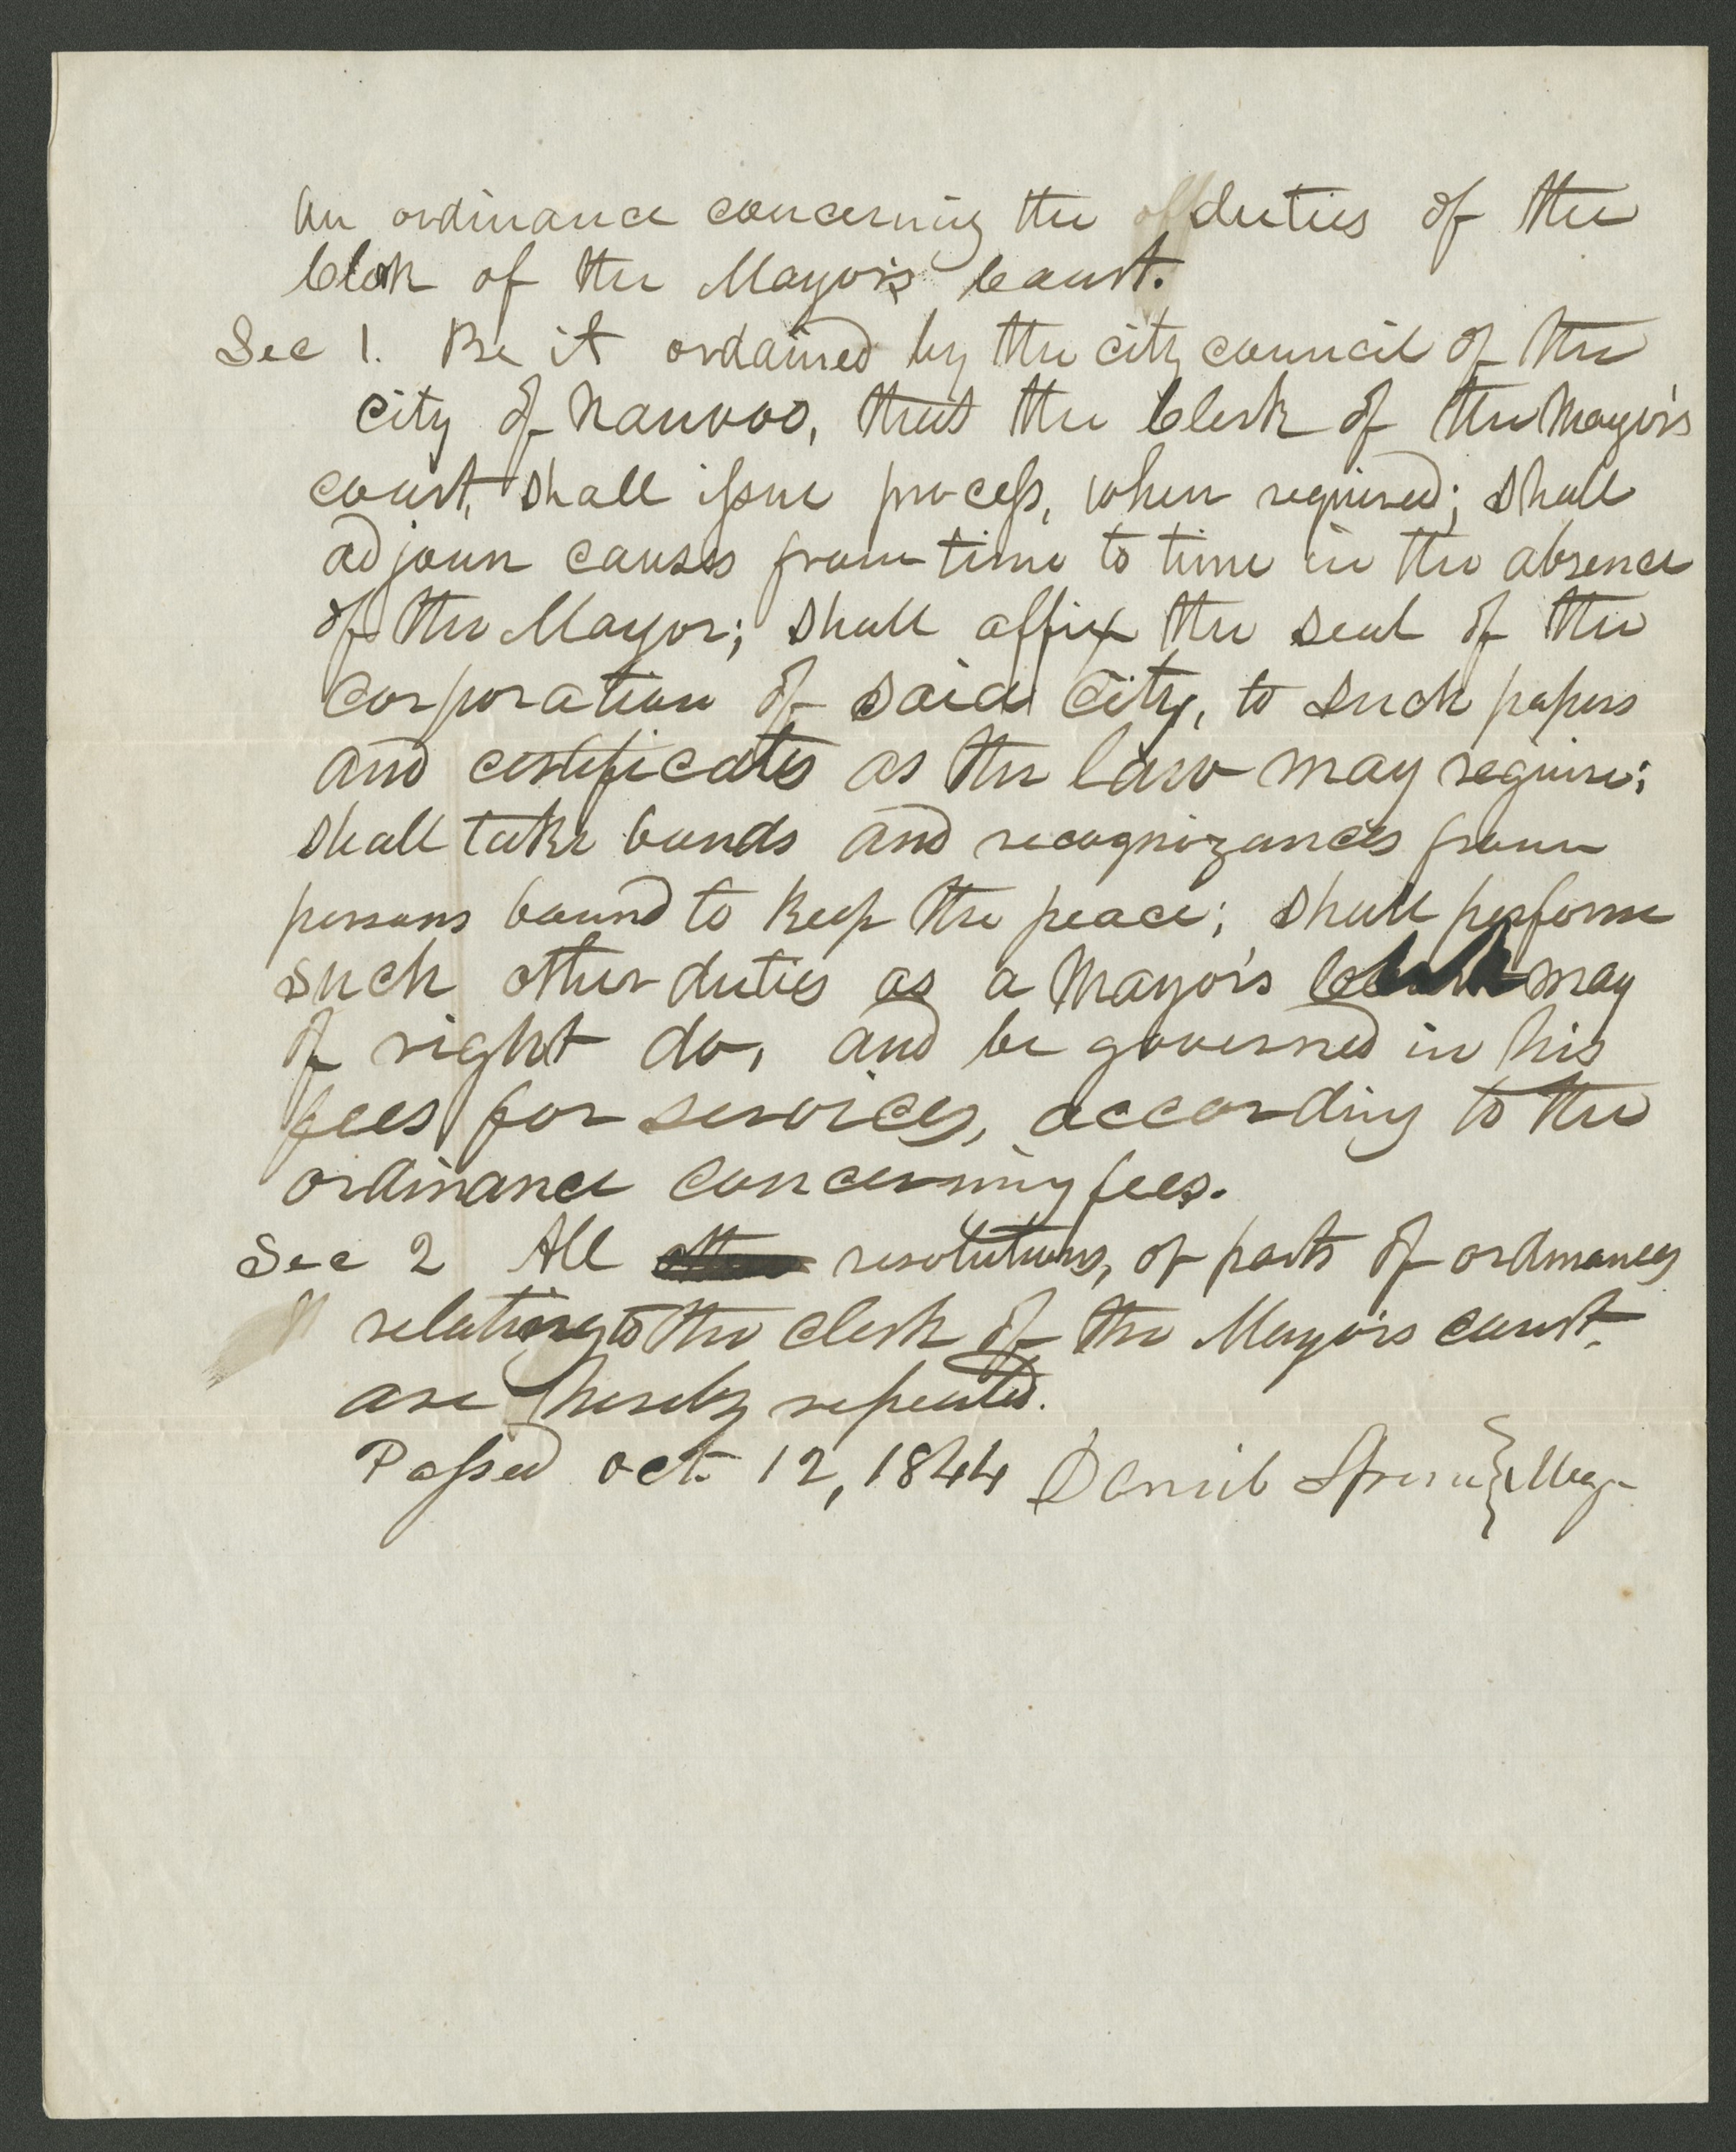 An ordinance concerning the duties of the
Clerk of the Mayor's Court.
Sec 1. Be it ordained by the city council of the
city of Nauvoo, that the Clerk of the Mayor's
court, shall issue process, when required; shall
adjourn causes from time to time in the absence
of the Mayor; shall affix the seal of the
Corporation of said City, to such papers
and certificates as the law may require;
shall take bonds and recognizances from
persons bound to keep the peace; shall perform
such other duties as a Mayor's may
of right do, and be governed in his
fees for services, according to the
ordinance concerning fees.
Sec 2 All resolutions, of parts of ordinances
relating to the clerk of the Mayor's court.
are hereby repealed.
Passed Oct. 12, 1844 Daniel Spencer } May